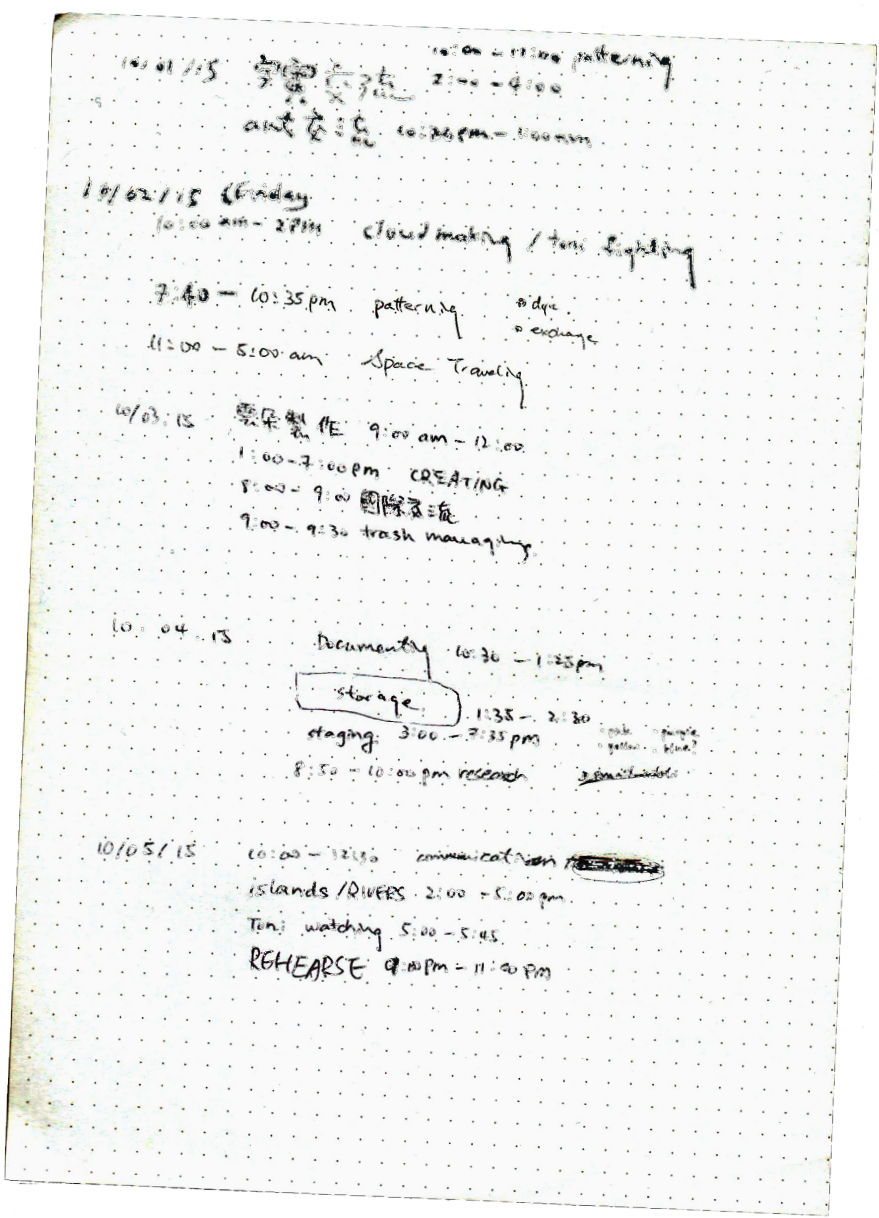 10:00 - 11:00 patterning
10/01/15 交流 2:00 - 4:00
ant 交流
10/02/15 (Friday
10:00 am - 2PM cloud making / toni fighting
7:40 - 10:35 pm patterning • dye
• exchange
11:00 - 5:00 am Space Traveling
10/03.15 雲朵製作 9:00 am - 12:00
1:00 - 7:00 pm CREATING
8:00 - 9:00 國際交流
9:00 - 9:30 trash managing
10.04.15 Documenting 10:30 - 1:25pm
storage 1:35 - 2:30
staging 3:00 - 7:35 pm
yellow • blue?
8:50 - 10:00 pm research
10/05/15 10:00 - 12:30 communication
islands / RIVERS 2:00 - 5:00 pm
Toni watching 5:00 - 5:45
REHEARSE 9:00 PM - 11:00 PM